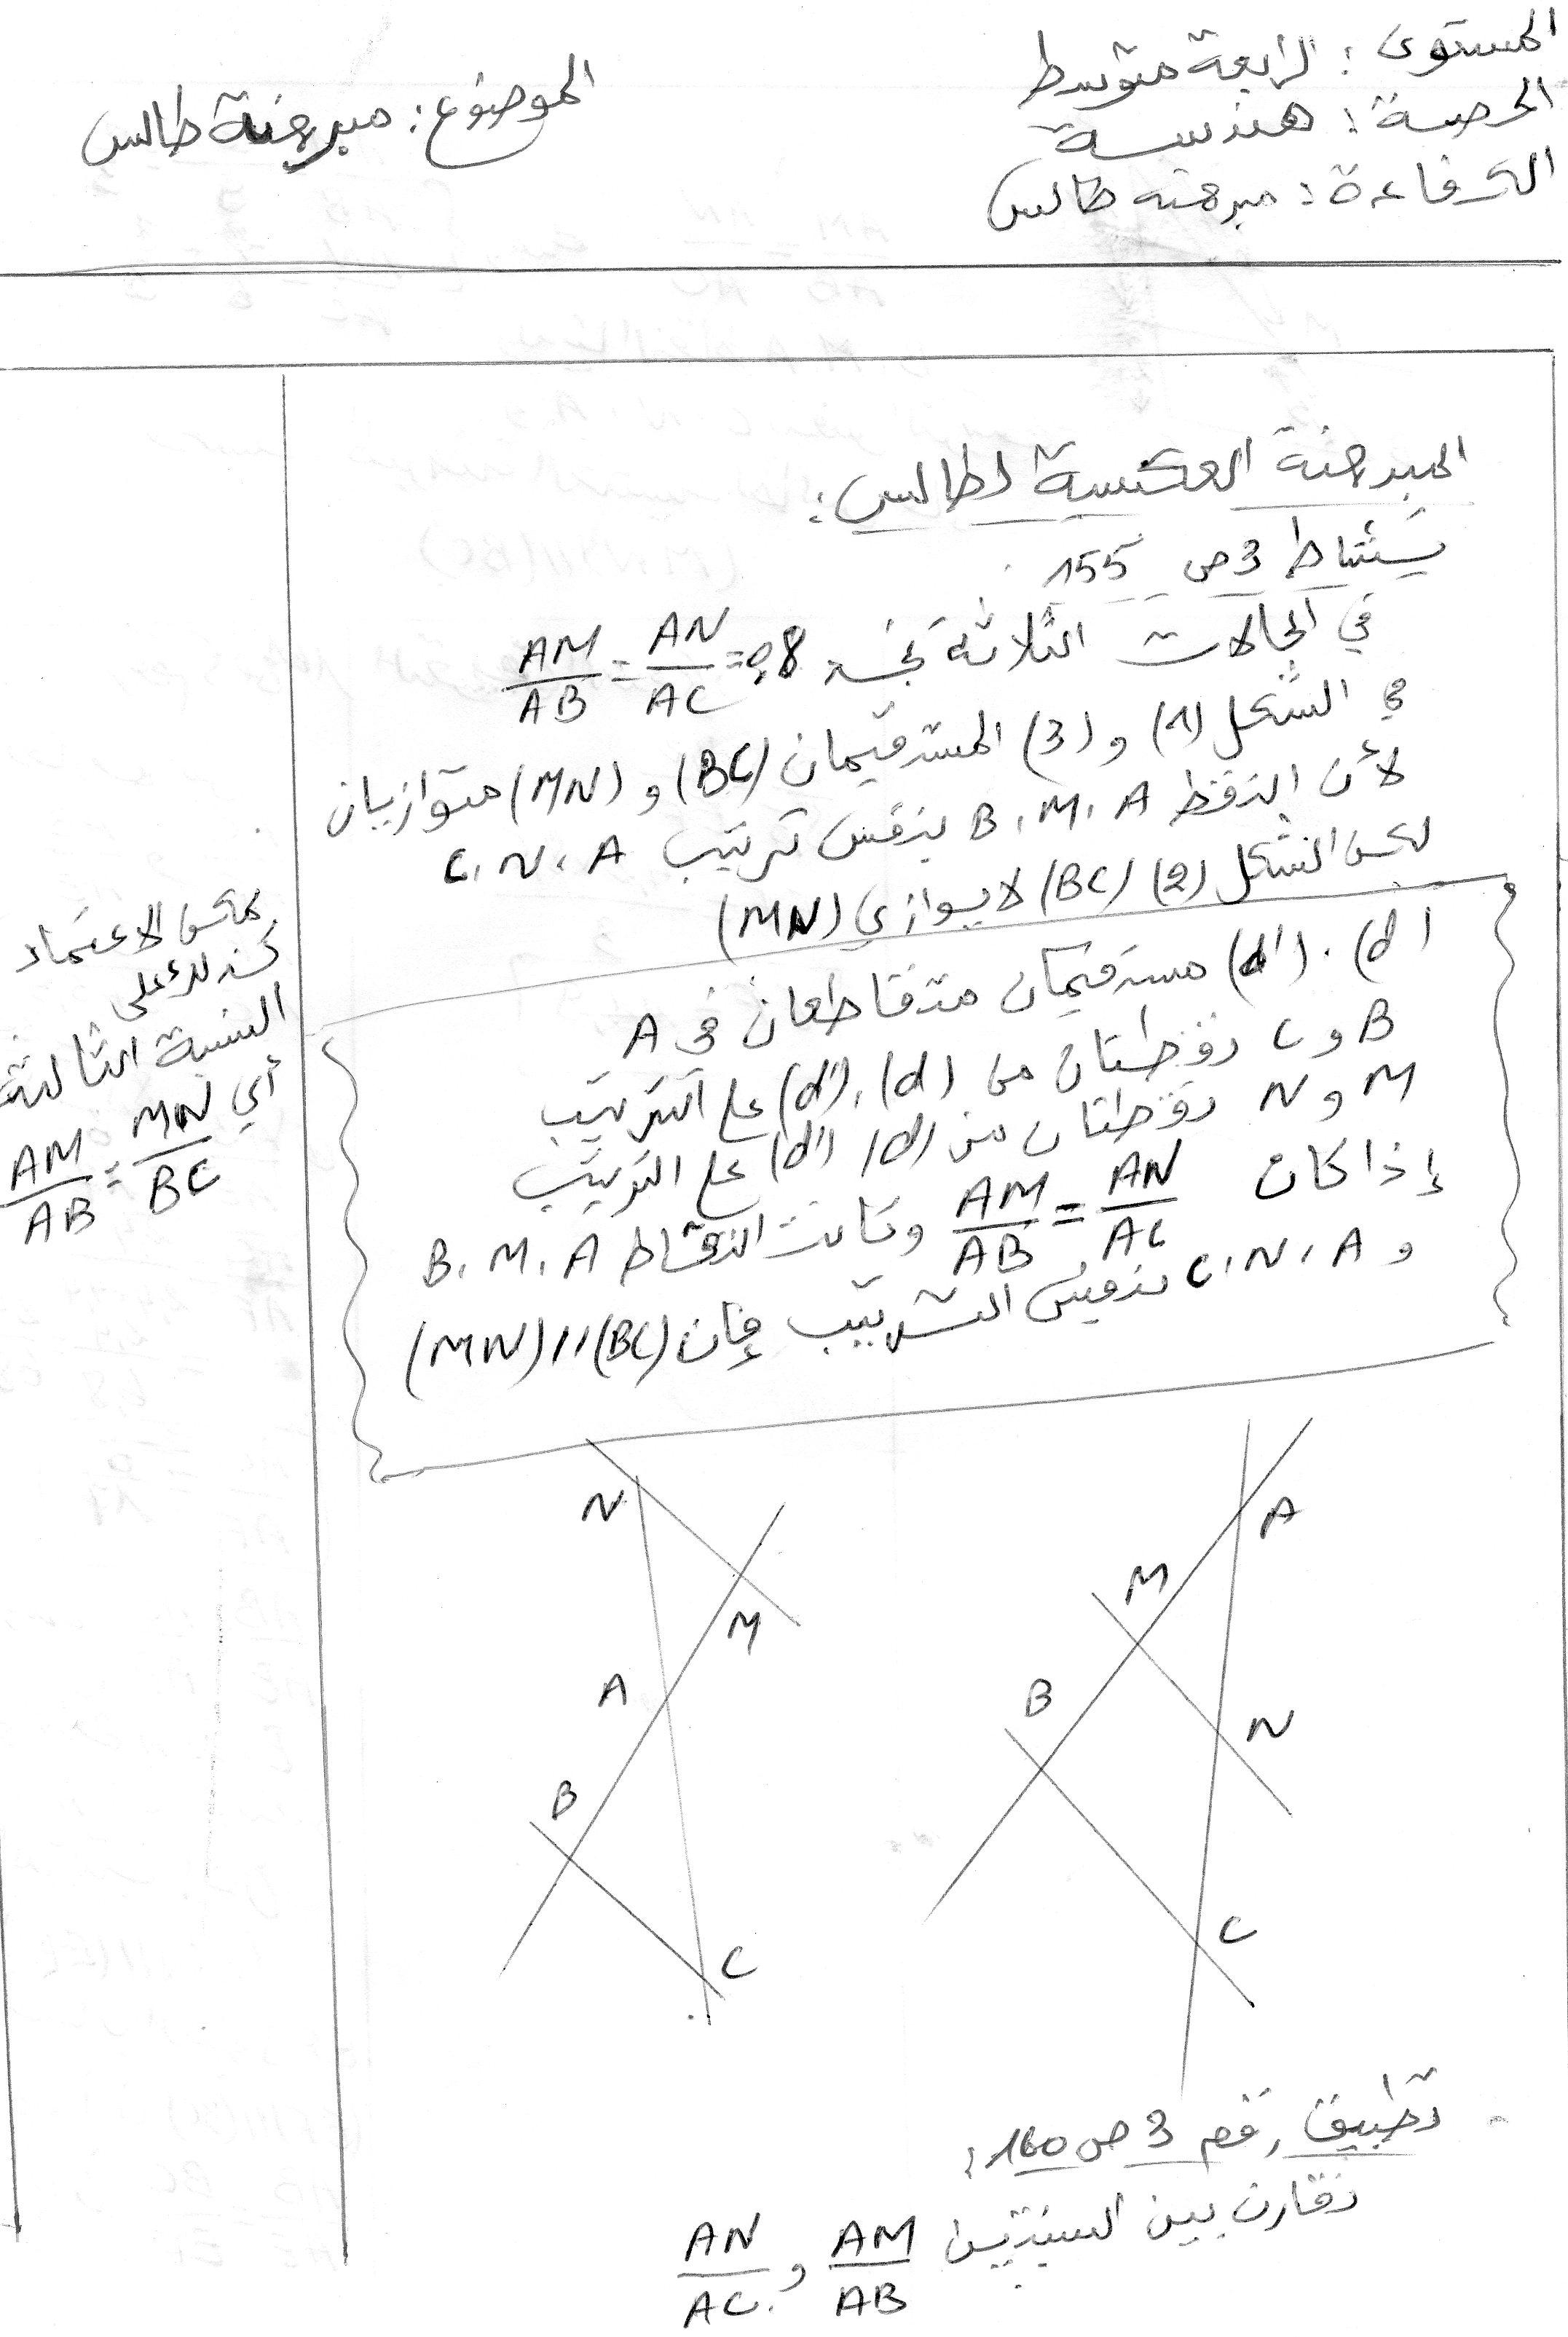 المستوى : الرابعة متوسط
الحصة : هندسة
الكفاءة : مبرهنة طالس
الموضوع : مبرهنة طالس
المبرهنة العكسية لطالس :
نشاط 3 ص 155
في الحالات الثلاثة نجد AM/AB = AN/AC = 0,8
في الشكل (1) و (3) المستقيمان (BC) و (MN) متوازيان
لأن النقط B , M , A بنفس ترتيب C , N , A
لكن الشكل (2) (BC) لا يوازي (MN)
(d) , (d') مستقيمان متقاطعان في A
B و C نقطتان من (d) , (d') على الترتيب
M و N نقطتان من (d) (d') على الترتيب
إذا كان AM/AB = AN/AC وكانت النقاط B , M , A
و C , N , A بنفس الترتيب فإن (MN) // (BC)
يمكن الاعتماد
كذلك على
النسبة الثالثة
أي AM/AB = MN/BC
N
M
A
B
C
A
M
B
N
C
تطبيق رقم 3 ص 160 :
نقارن بين النسبتين AM/AB و AN/AC